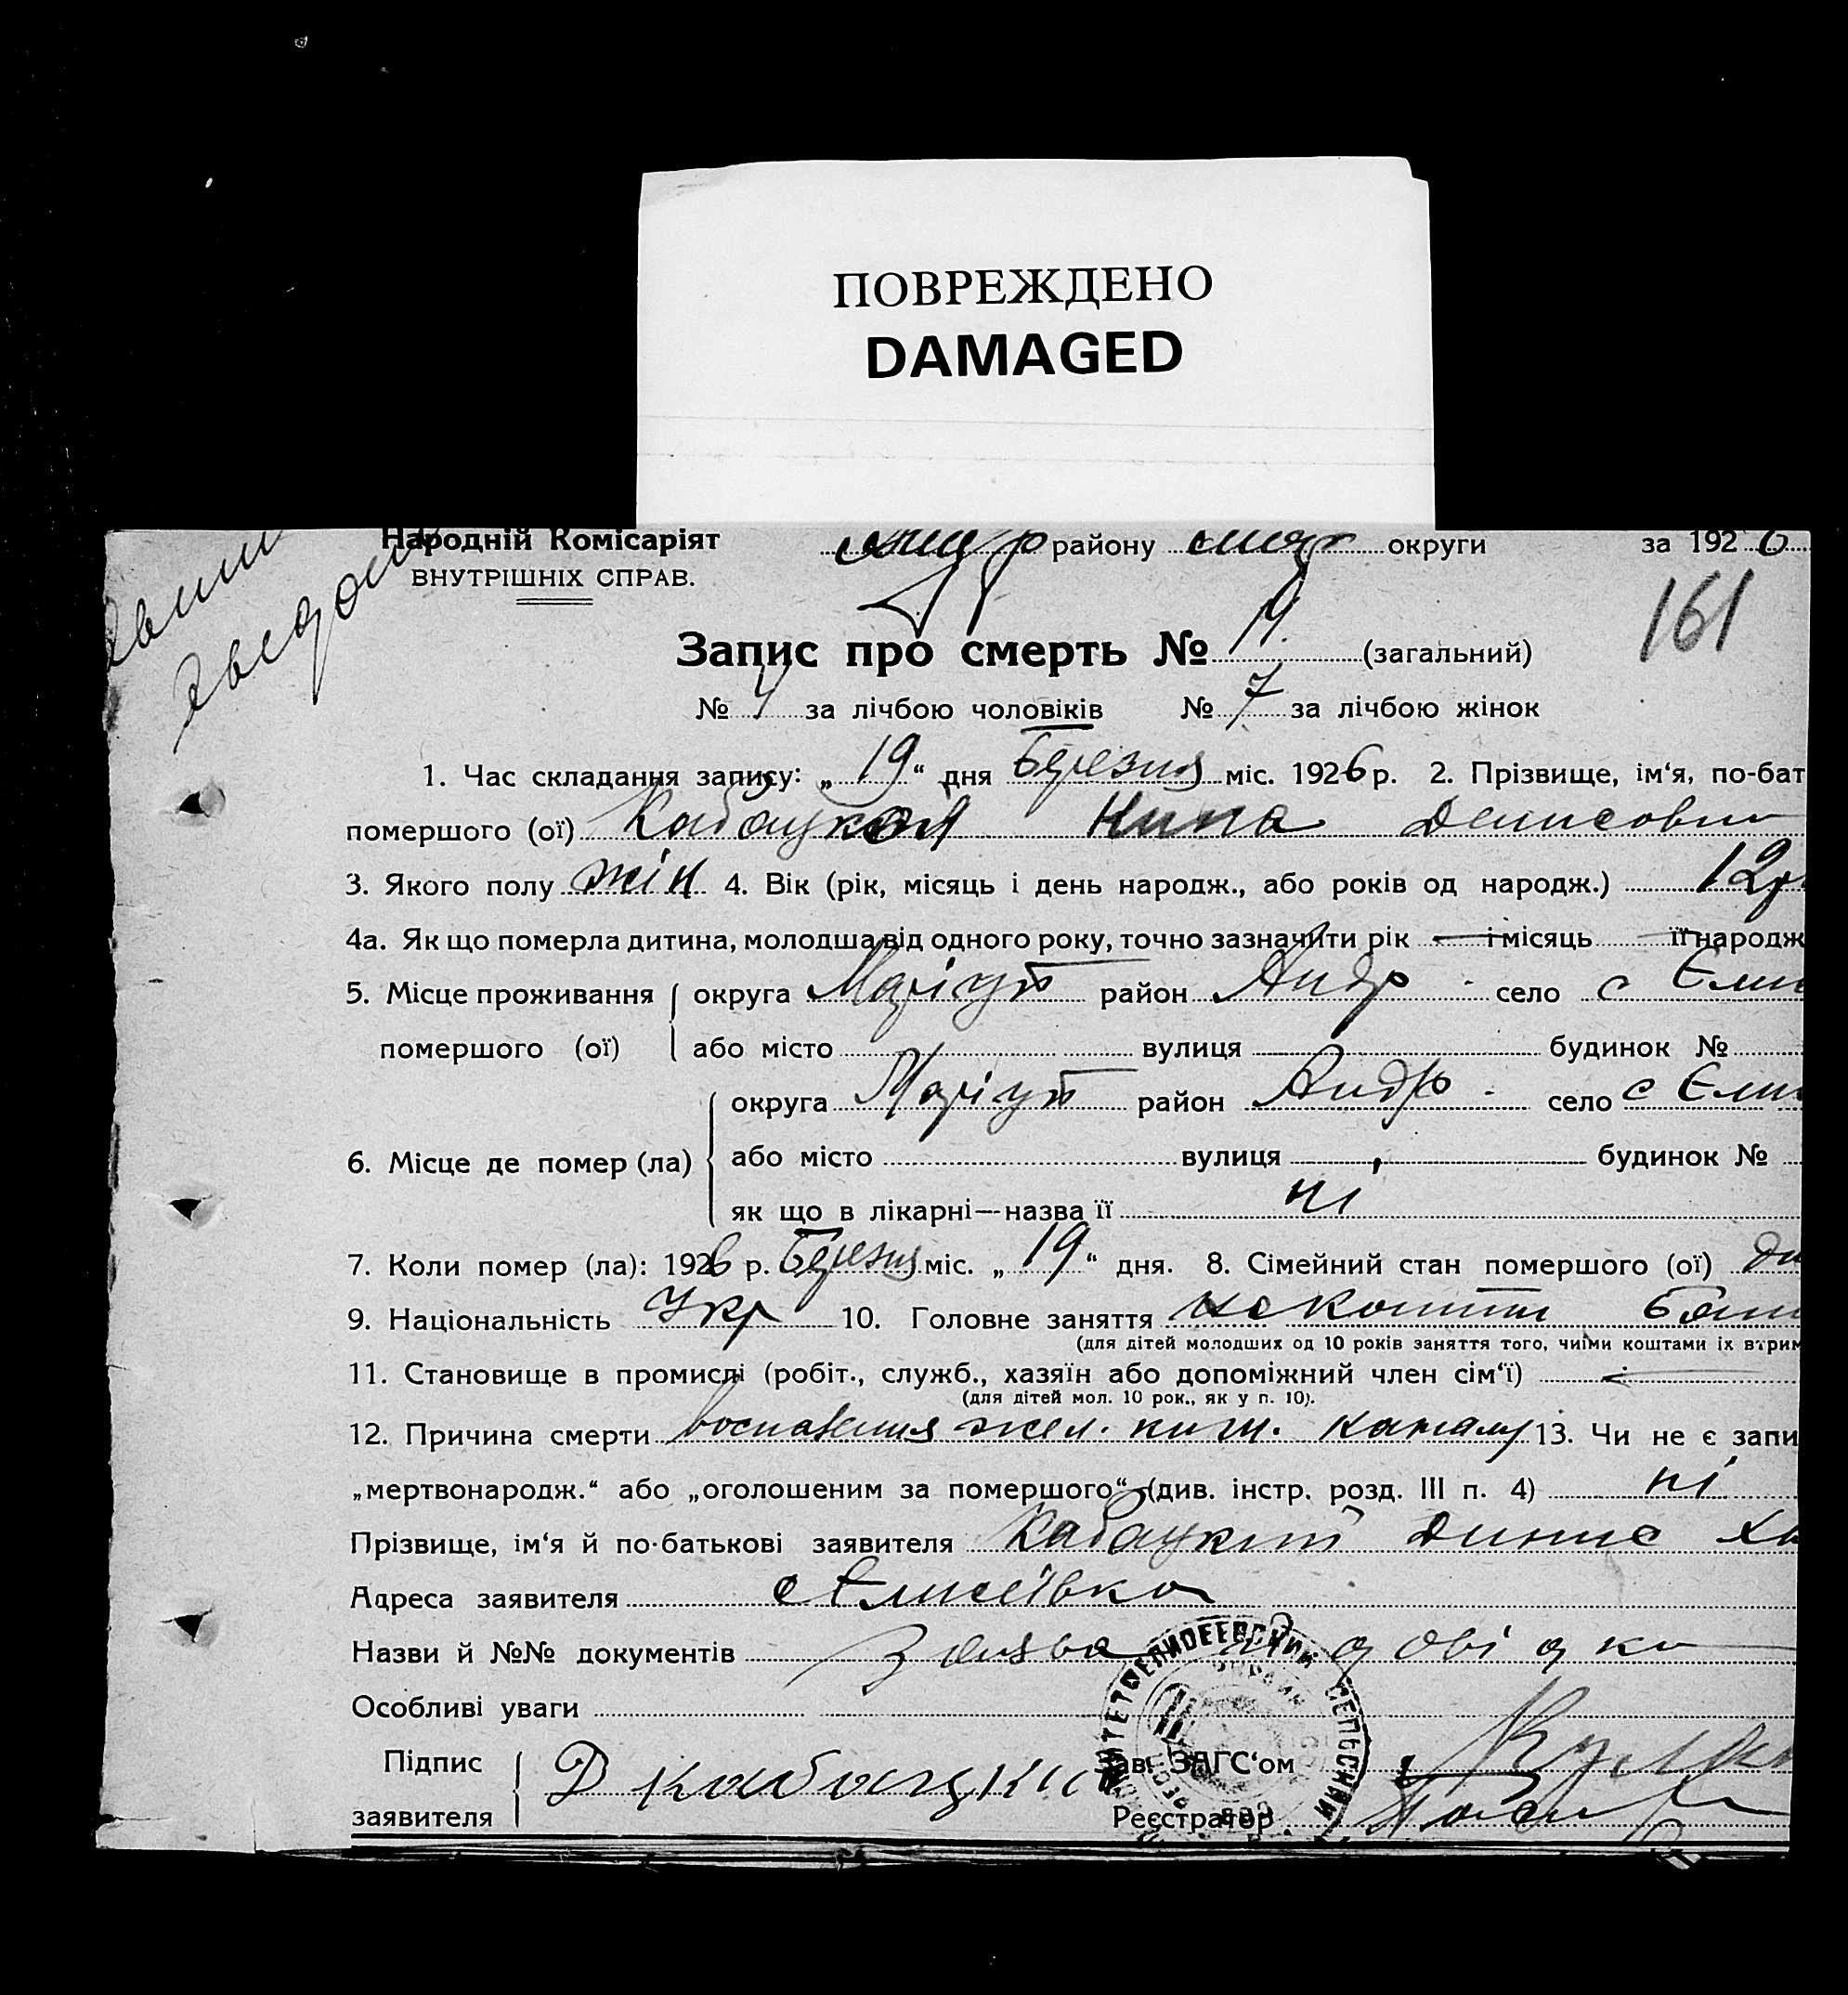 ПОВРЕЖДЕНО
DAMAGED
Народній Комісаріят району округи за 1926
ВНУТРІШНІХ СПРАВ.
161
Запис про смерть № (загальний)
№ 4 за лічбою чоловіків № 7 за лічбою жінок
1. Час складання запису: „19“ дня Березня міс. 1926 р. 2. Прізвище, ім‘я, по-бат
помершого (ої) Кабацкая Нина Денисовна
3. Якого полу жін 4. Вік (рік, місяць і день народж., або років од народж.) 12
4а. Як що померла дитина, молодша від одного року, точно зазначити рік — і місяць — її народж
5. Місце проживання округа Маріуп район Андр. село с Єли
помершого (ої) або місто вулиця будинок №
округа Маріуп район Андр. село с Єли
6. Місце де помер (ла) або місто вулиця будинок №
як що в лікарні—назва її ні
7. Коли помер (ла): 1926 р. Березня міс. „19“ дня. 8. Сімейний стан помершого (ої)
9. Національність Укр 10. Головне заняття
(для дітей молодших од 10 років заняття того, чиїми коштами їх втрим
11. Становище в промислі (робіт., служб., хазяїн або допоміжний член сім‘ї) —
(для дітей мол. 10 рок., як у п. 10).
12. Причина смерти воспаления жел. киш. каналу 13. Чи не є запи
„мертвонародж.“ або „оголошеним за помершого“ (див. інстр. розд. III п. 4) ні
Прізвище, ім‘я й по-батькові заявителя Кабацкий Динис
Адреса заявителя с Єлисеівка
Назви й №№ документів Заява й довідка
Особливі уваги
Підпис Д Кабацки Зав. ЗАГС‘ом
заявителя Реєстратор